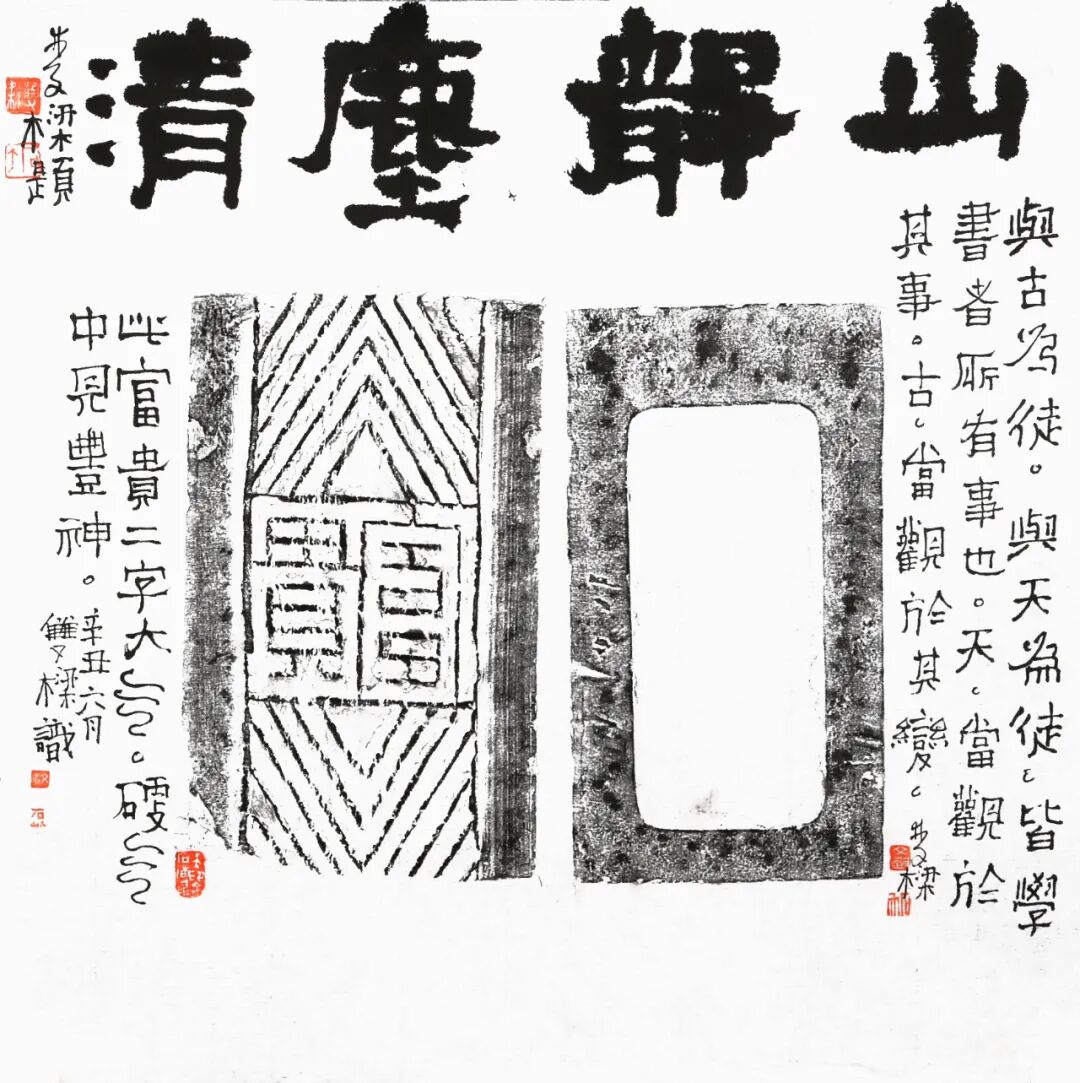 山解塵清
與古為徒。與天為徒。皆學
書者所有事也。天。當觀於
其事。古。當觀於其變。
富貴
此富貴二字大
中見豐神。
辛丑六月
雙樑識